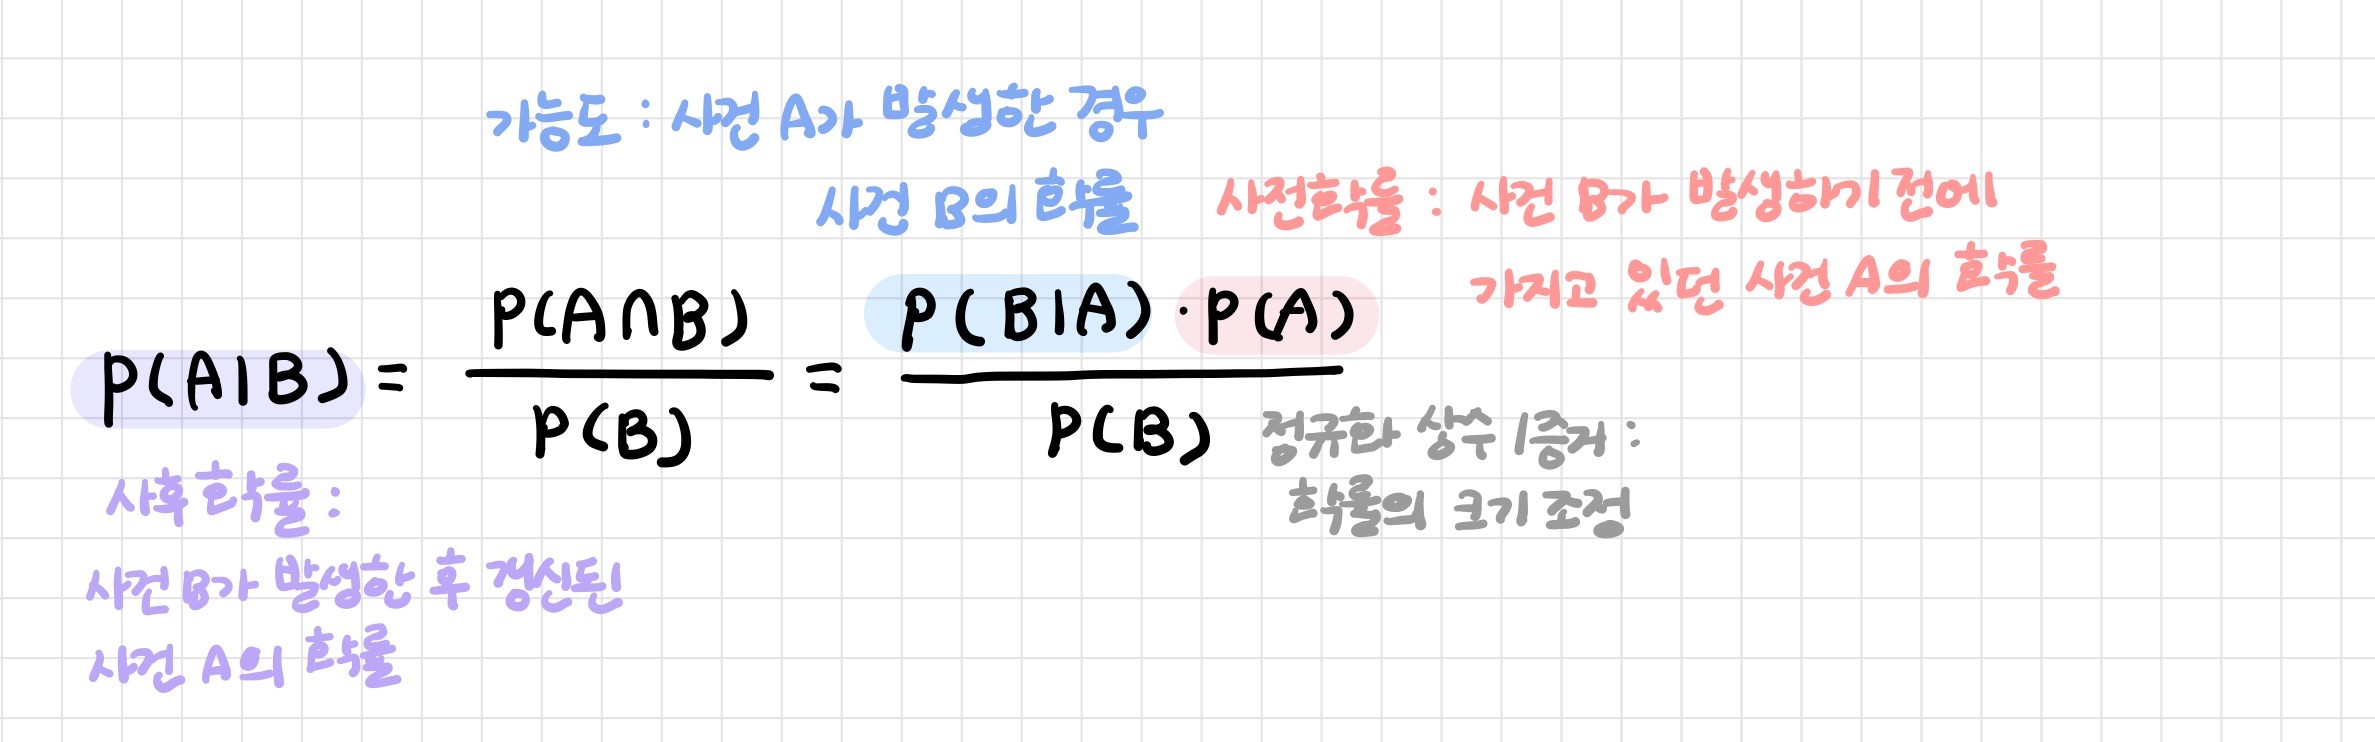 가능도 : 사건 A가 발생한 경우
사건 B의 확률
사전확률 : 사건 B가 발생하기 전에
가지고 있던 사건 A의 확률
P(A|B) = P(A∩B) / P(B) = P(B|A) · P(A) / P(B)
정규화 상수 / 증거 :
확률의 크기 조정
사후 확률 :
사건 B가 발생한 후 갱신된
사건 A의 확률